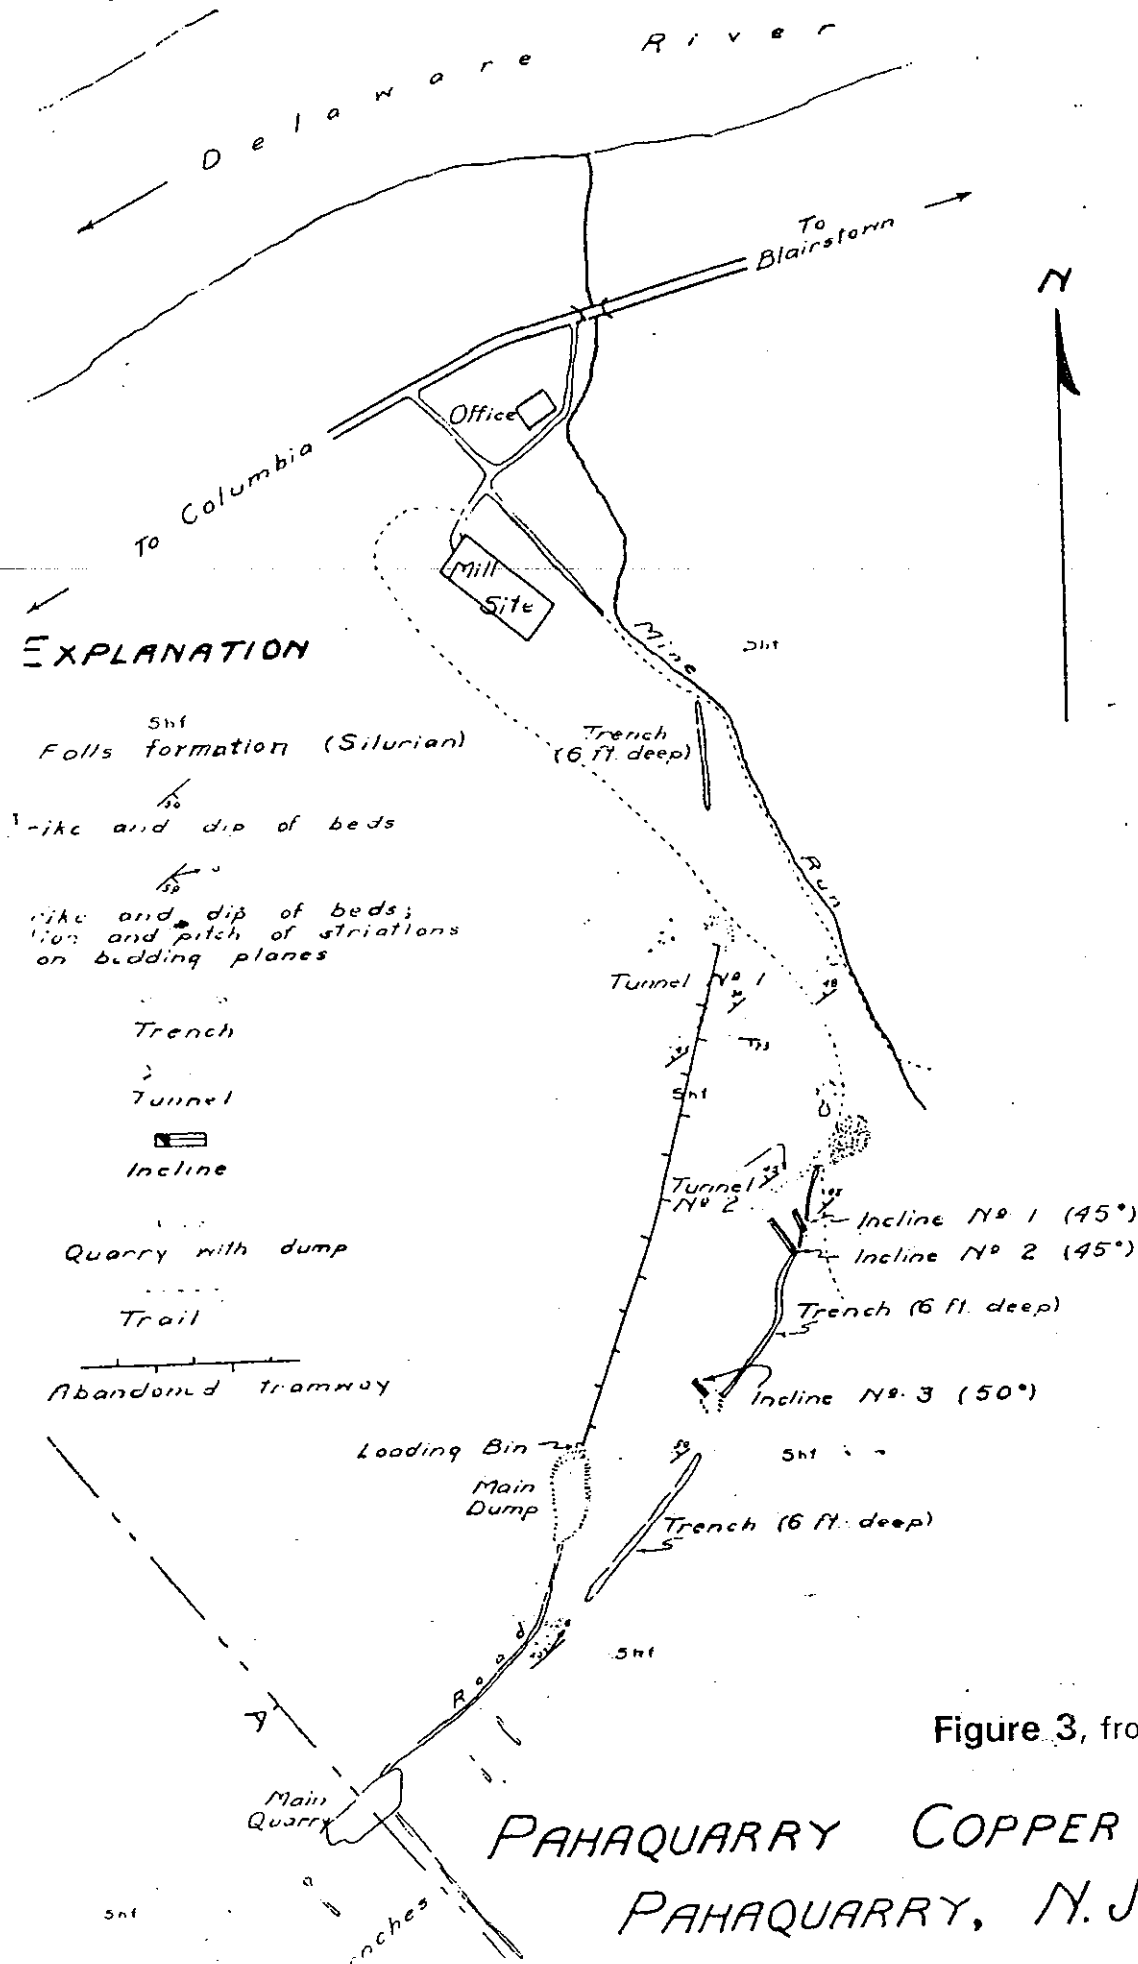 Delaware River
To
Blairstown
N
Office
To Columbia
Mill
Site
Mine
Run
Shf
EXPLANATION
Shf
Falls formation (Silurian)
50
and dip of beds
50
and dip of beds;
and pitch of striations
on bedding planes
Trench
Tunnel
Incline
Quarry with dump
Trail
Abandoned tramway
Trench
(6 ft. deep)
Tunnel No 1
48
Shf
Tunnel
No 2
Incline No 1 (45°)
Incline No 2 (45°)
Trench (6 ft. deep)
Incline No. 3 (50°)
Loading Bin
Main
Dump
50
Shf
Trench (6 ft. deep)
Road
Shf
A
Main
Quarry
Shf
Figure 3, fro
PAHAQUARRY COPPER
PAHAQUARRY, N.J